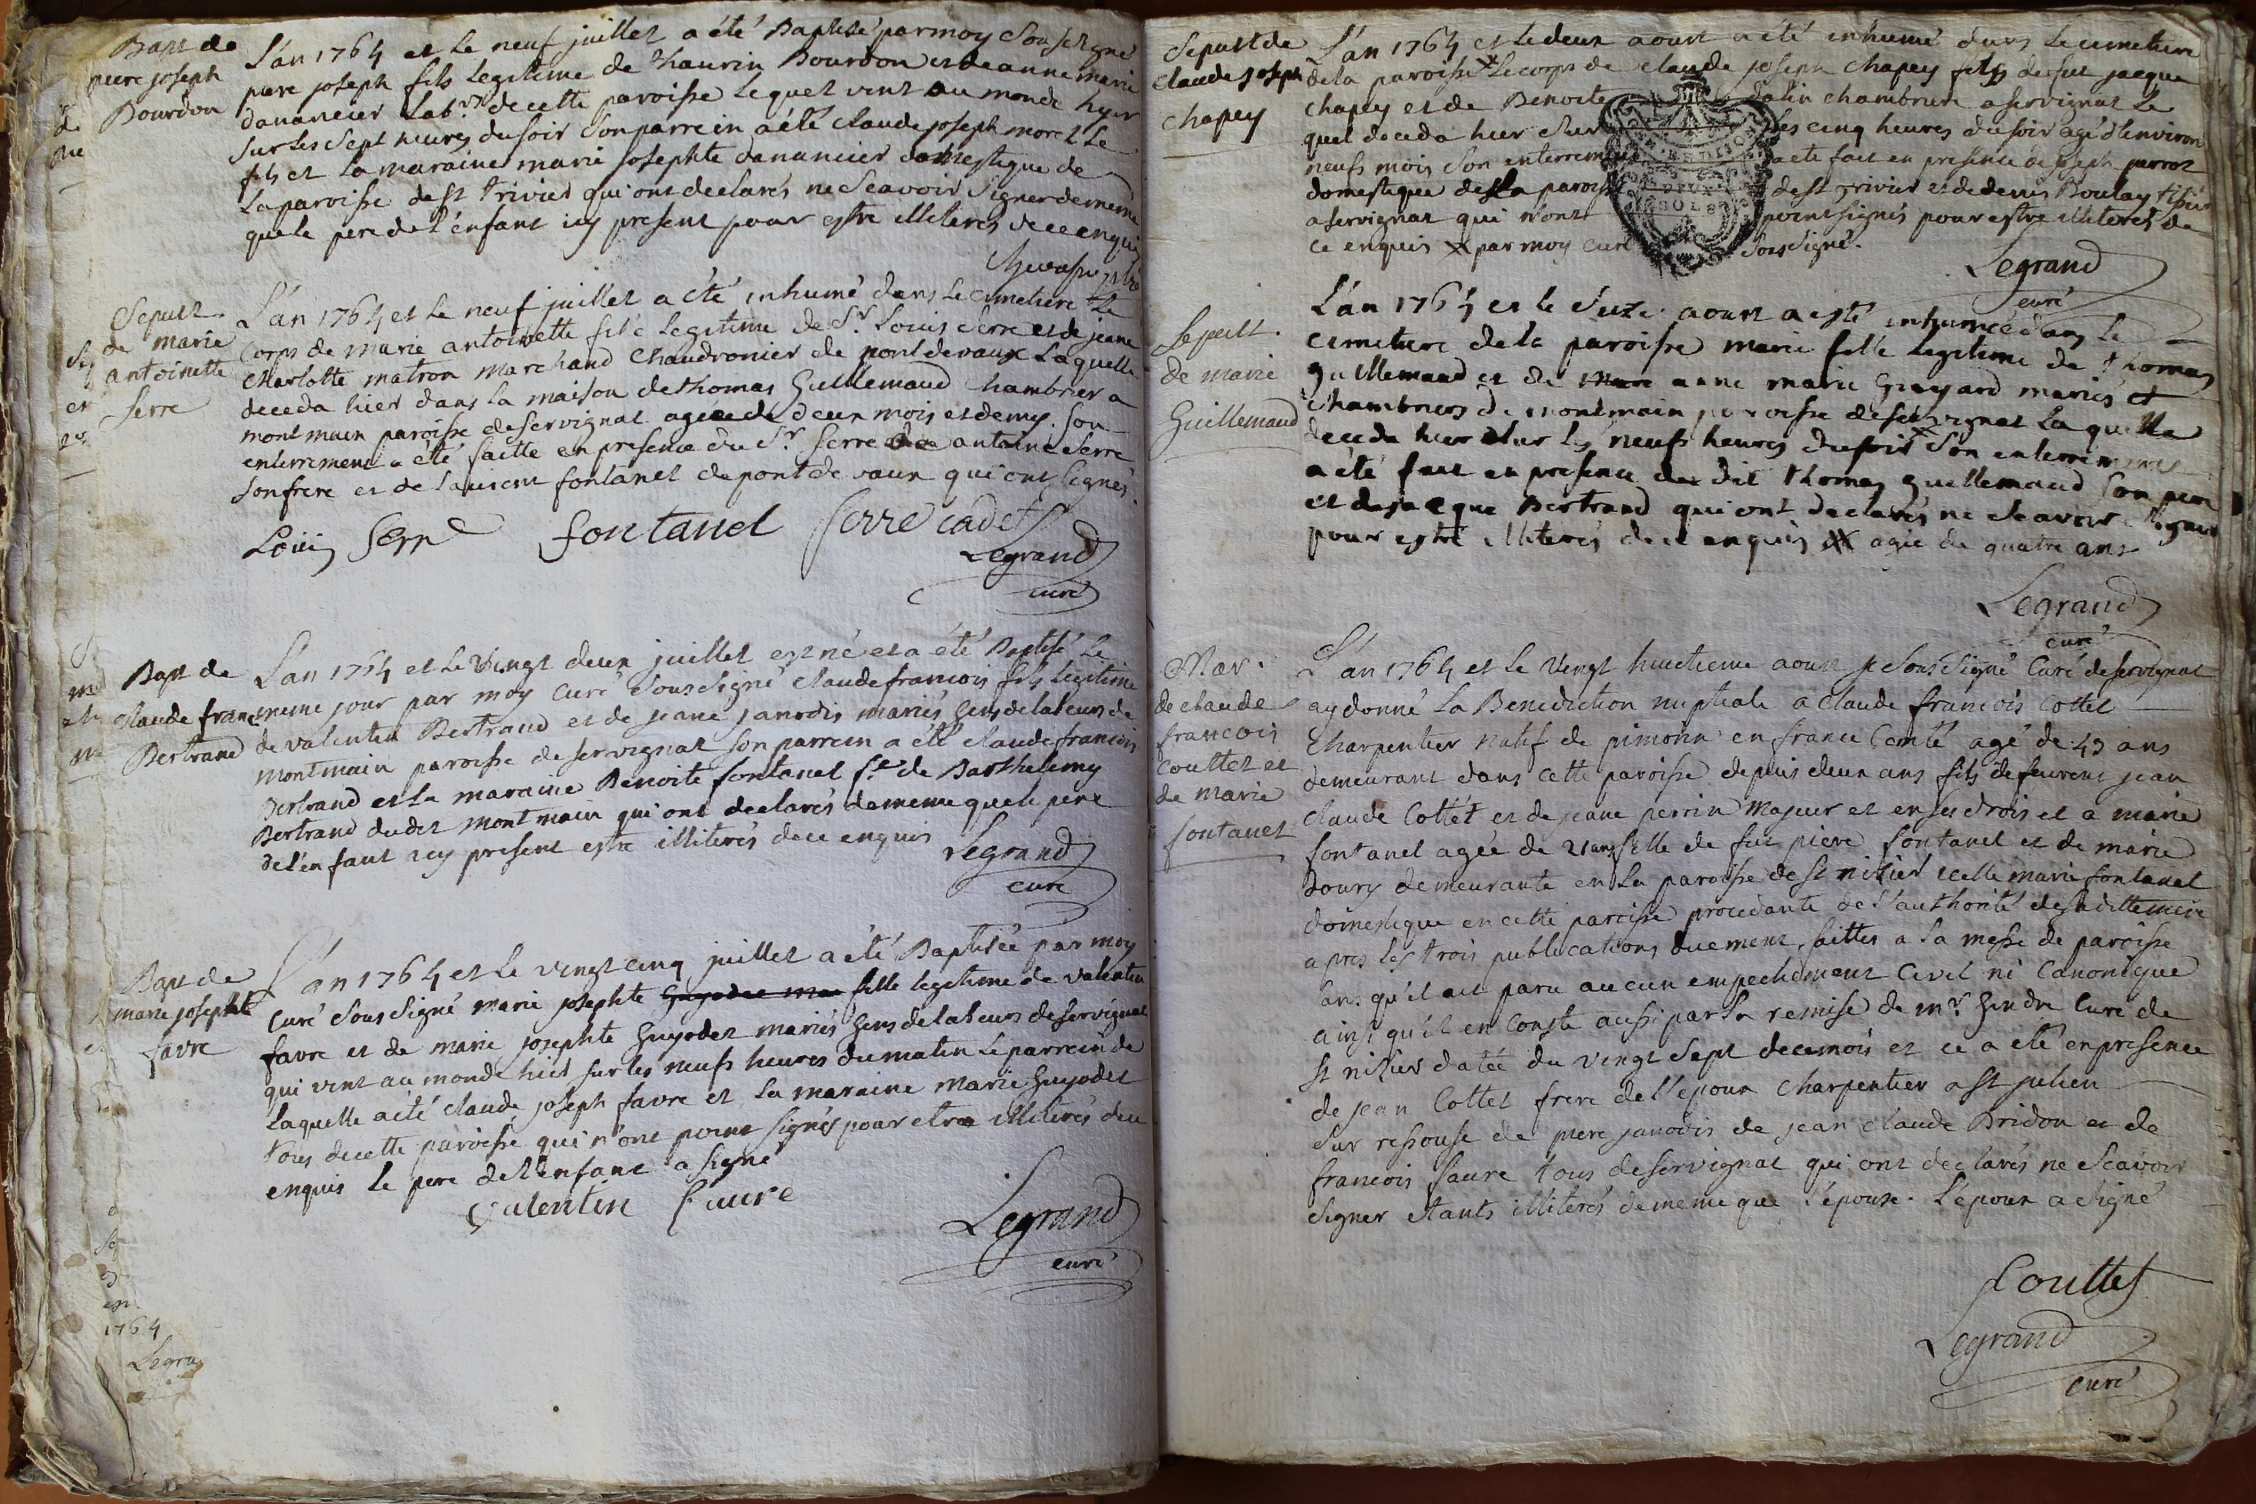 Bapt de
piere joseph
Bourdon
L'an 1764 et le neuf juillet a été Baptisé par moy Soussigné
piere joseph fils Legitime de thaurin Bourdon et de anne marie
dananciér Lab.rs de cette paroisse Lequel vint au monde hyer
Sur les Sept heures du soir Son parrein a été claude joseph morel Le
fils et La maraine marie josephte danancier domestique de
La paroisse de st trivier qui ont declarés ne Scavoir Signer de meme
que le pere de l'énfant icy present pour estre illiterés de ce enquis
Sepult.
de marie
antoinette
Serre
L'an 1764 et le neuf juillet a été inhumé dans Le cimetiere Le
Corps de marie antoinette fil'e Legitime de Sr. Louis Serre et de jeane
Charlotte matron marchand Chaudronier de pontdevaux Laquelle
deceda hier dans La maison de thomas Guillemaud Chambrier a
montmain paroisse de servignat agée de deux mois et demy. Son
enterrement a été faitte en presence du Sr. Serre antoine Serre
Son frere et de Laurent fontanel de pont de vaux qui ont Signés.
Louis Serre fontanel Serre cadet
Legrand
curé
Bapt de
Claude franc
Bertrand
L'an 1764 et Le Vingt deux juillet est né et a été Baptisé Le
meme jour par moy Curé Sous Signé Claude francois fils Legitime
de valentin Bertrand et de jeane janodis mariés Gens de labeurs de
montmain paroisse de servignat Son parrein a été claude francois
Bertrand et La maraine Benoite fontanel f.e de Barthelemy
Bertrand dudit montmain qui ont declarés de meme que le pere
de l'énfant icy present estre illiterés de ce enquis
Legrand
curé
Bapt de
marie josephte
favre
L'an 1764 et Le vingt cinq juillet a été Baptisée par moy
Curé Sous Signé marie josephte fille Legitime de valentin
favre et de marie josephte Guyodet mariés Gens de labeurs de servignat
qui vint au monde hier sur les neufs heures du matin Le parrein de
Laquelle a été claude joseph favre et La maraine Marie Guyodet
tous de cette paroisse qui n'ont point Signés pour etre illiterés de ce
enquis le pere de l'énfant a Signé
Valentin faure
Legrand
curé
1764
Legra
Sepult de
Claude Joseph
Chapey
L'an 1764 et le deux aoust a été inhumé dans Le cimetiere
de la paroisse x Le corps de Claude joseph Chapey fils de fut jacque
Chapey et de Benoite dalin chambriere a servignat Le
quel deceda hier Sur les cinq heures du soir agé d'environ
neufs mois Son enterrement a été fait en presence de joseph perrot
domestique de la paroisse de st trivier et de denis Boulay
a servignat qui n'ont point signés pour estre illiterés de
ce enquis x par moy curé Soussigné.
Legrand
curé
Sepult.
de marie
Guillemaud
L'an 1764 et le aoust a esté inhumée dans Le
Cimetiere de la paroisse marie fil'e Legitime de thomas
guillemaud et de anne marie Guyard mariés et
Chambriers de montmain paroisse de servignat Laquelle
deceda hier Sur les neufs heures du soir x Son enterrement
a été fait en presence du dit thomas guillemaud Son pere
et de jacque Bertrand qui ont declarés ne Scavoir Signer
pour estre illiterés de ce enquis x agée de quatre ans
Legrand
curé
Mar.
de claude
francois
Couttet et
de marie
fontanel
L'an 1764 et le Vingt huictieme aoust je Sous Signé Curé de servignat
ay donné La Benediction nuptiale a Claude francois Cottet
Charpentier natif de pimorin en france Comté agé de 43 ans
demeurant dans cette paroisse depuis deux ans fils de feurent jean
Claude Cottet et de jeane perrin Majeur et en ses drois et a marie
fontanel agée de 21 ans fille de fut piere fontanel et de marie
Boury demeurante en la paroisse de St nizier icelle marie fontanel
domestique en cette paroisse procedante de l'authorité de sa ditte mere
apres les trois publications duement faittes a la messe de paroisse
Sans qu'il ait paru aucun empechement Civil ni Canonique
ainsi qu'il en Conste aussi par la remise de mr. Gindre Curé de
St nizier datée du vingt Sept de ce mois et ce a été en presence
de jean Cottet frere de l'époux Charpentier a St julien
Sur ressouse de piere janodis de jean claude Bridon et de
francois faure tous de servignat qui ont declarés ne Scavoir
Signer étants illiterés de meme que l'épouse. L'époux a Signé
Couttet
Legrand
curé